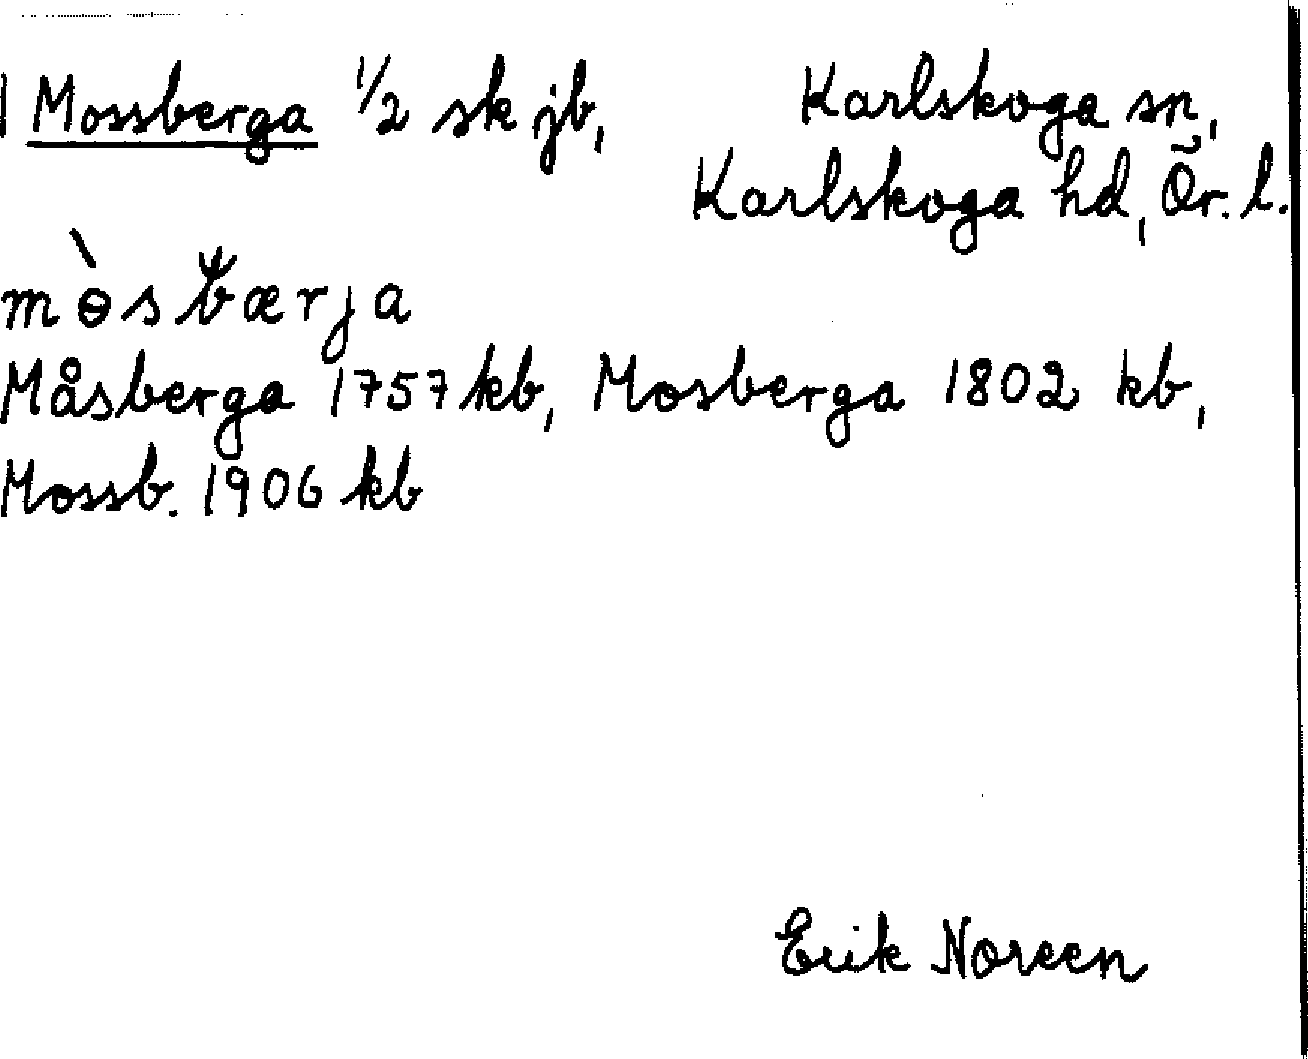 Mossberga 1/2 sk jb, Karlskoga sn,
Karlskoga hd, Ör. l.
mɵ̀sbærja
Måsberga 1757 kb, Mosberga 1802 kb,
Mossb. 1906 kb
Erik Noreen